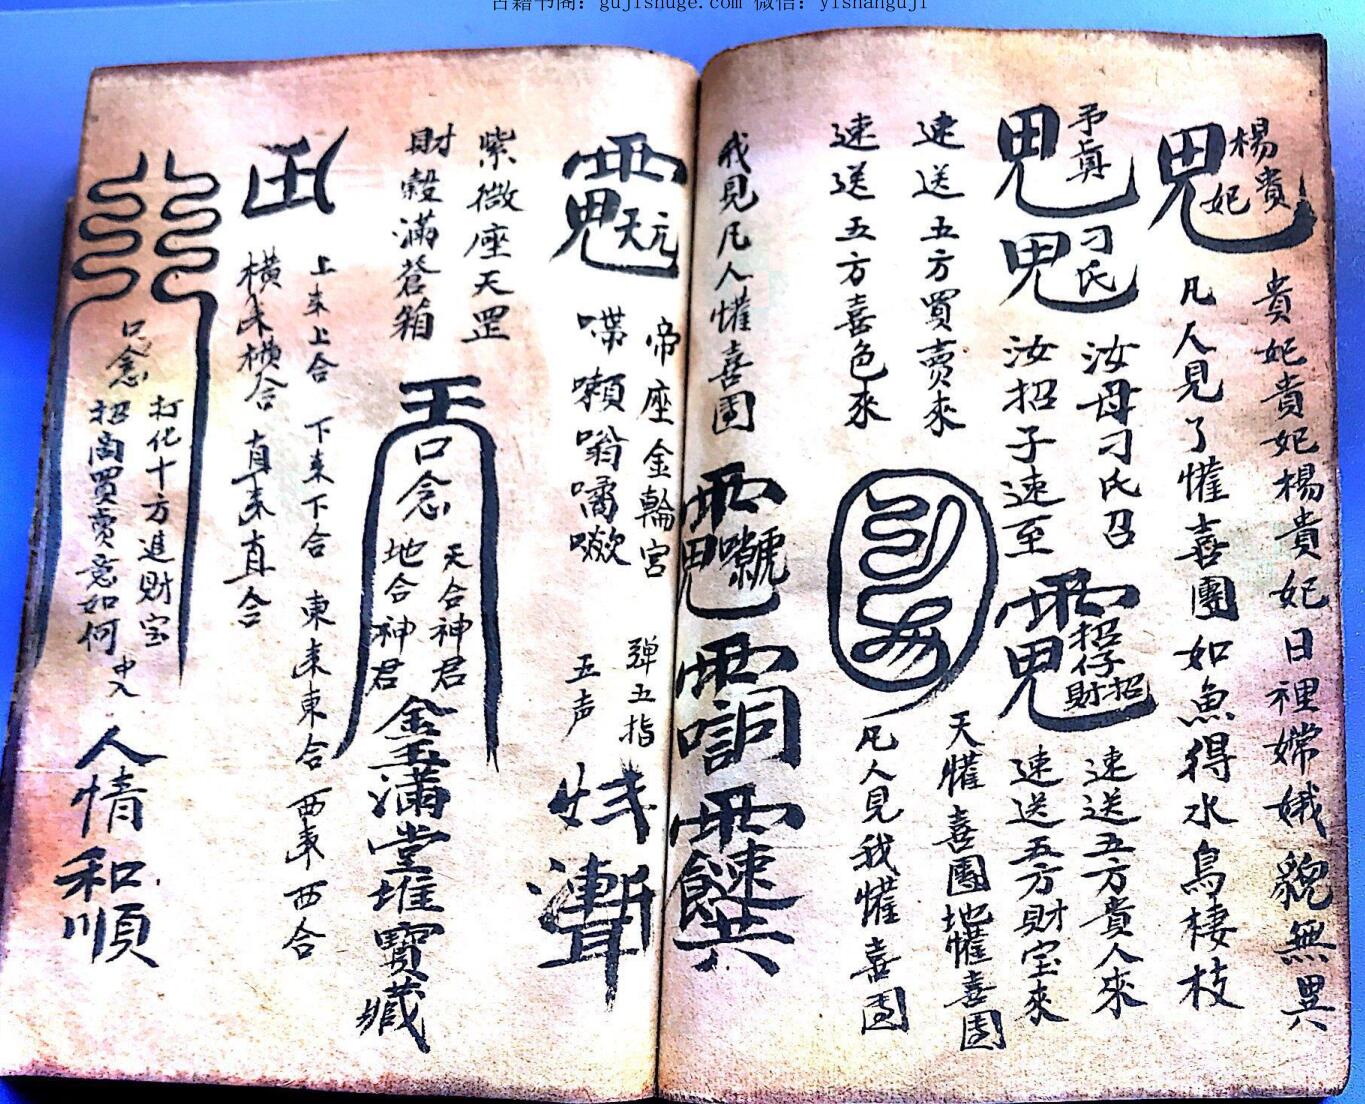 古籍书阁：gujishuge.com 微信：yishanguji
楊貴妃
貴妃貴妃楊貴妃日裡嫦娥貌無異
凡人見了懽喜團如魚得水鳥棲枝
刁氏
汝母刁氏召
汝招子速至
招仔招財
速送五方貴人來
速送五方財宝來
速送五方買賣來
速送五方喜色來
天懽喜團地懽喜団
凡人見我懽喜団
我見凡人懽喜団
天元
帝座金輪宮
弹五指
五声
紫微座天罡
財穀滿蒼箱
口念
天合神君
地合神君
金玉滿堂堆寶藏
上来上合 下来下合 東来東合 西来西合
横来横合 直来直合
口念
打化十方進財宝
招商買賣意如何
人情和順